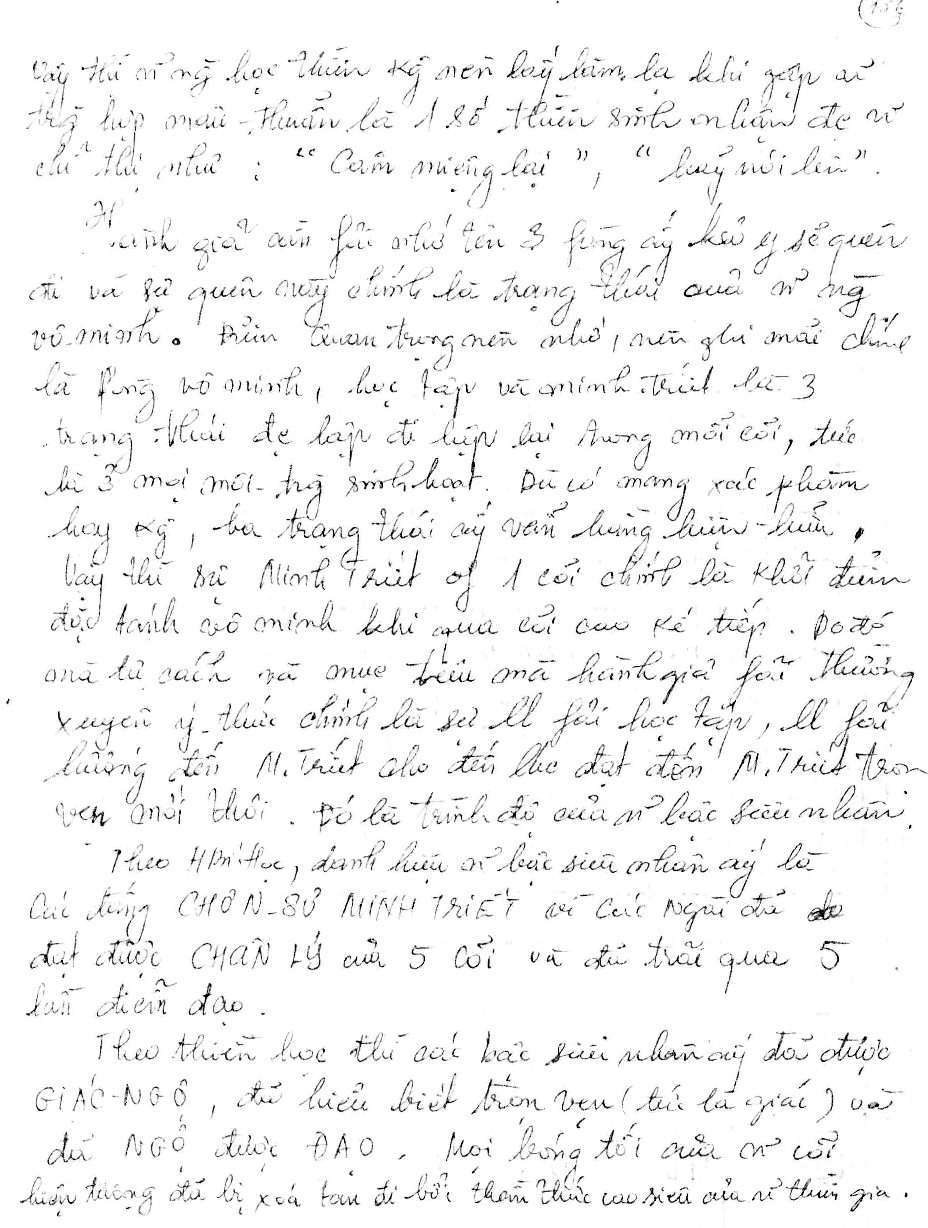 156
Vậy thì n~ ng` học thiền Kg nên lấy làm lạ khi gặp n~
trg` hợp mâu-thuẫn là 1 số thiền sinh nhận đc n~
chỉ thị như : "Câm miệng lại", "hãy nói lên".
Hành giả cần fải nhớ tên 3 fòng ấy kẻo y sẽ quên
đi và sự quên này chính là trạng thái của n~ ng`
vô-minh. Điểm Quan trọng nên nhớ, nên ghi mãi chính
là fòng vô minh, học tập và minh triết là 3
trạng thái đc lập đi lập lại trong mỗi cõi, tức
là ở mọi môi-trg` sinh hoạt. Dù có mang xác phàm
hay Kg, ba trạng thái ấy vẫn hằng hiện-hữu.
Vậy thì sự Minh Triết of 1 cõi chính là Khởi điểm
đặc tánh vô minh khi qua cõi cao kế tiếp. Do đó
mà tư cách và mục tiêu mà hành giả fải thường
xuyên ý-thức chính là sự ll fải học tập, ll fải
hướng đến M.Triết cho đến lúc đạt đến M.Triết tròn
vẹn mới thôi. Đó là trình độ của n~ bậc siêu nhân.
Theo HBí Học, danh hiệu n~ bậc siêu nhân ấy là
Các đấng CHƠN-SƯ MINH TRIẾT vì Các Ngài đã
đạt được CHÂN LÝ của 5 Cõi và đã trãi qua 5
lần điểm đạo.
Theo thiền học thì các bậc siêu nhân ấy đã được
GIÁC-NGỘ, đã hiểu biết trọn vẹn (tức là giác) và
đã NGỘ được ĐẠO. Mọi bóng tối của n~ cõi
hiện tượng đã bị xoá tan đi bởi tâm thức cao siêu của n~ thiền gia.